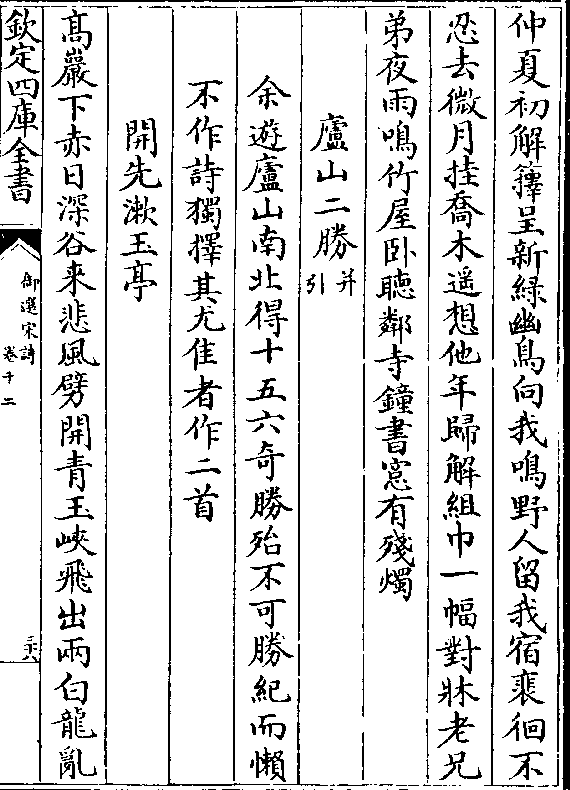 仲夏初解籜呈新綠幽鳥向我鳴野人留我宿裴徊不
忍去微月挂喬木遥想他年歸解組巾一幅對牀老兄
弟夜雨鳴竹屋卧聴鄰寺鐘書窓有殘燭
廬山二勝并引
余遊廬山南北得十五六奇勝殆不可勝紀而懶
不作詩獨擇其尤佳者作二首
開先漱玉亭
髙巖下赤日深谷来悲風劈開青玉峽飛出兩白龍亂
欽定四庫全書
御選宋詩
卷十二
三六